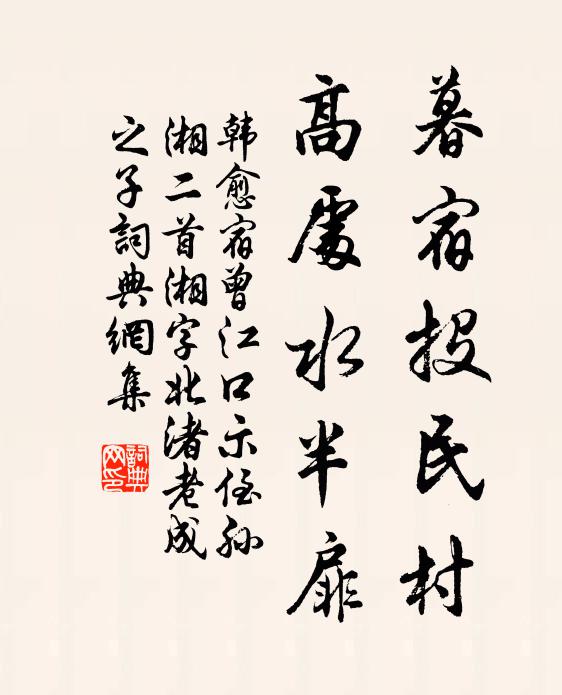 暮宿投民村
高處水半扉
韩愈宿曾江口示侄孙
湘二首湘字北渚老成
之子詞典網集
詞典网印